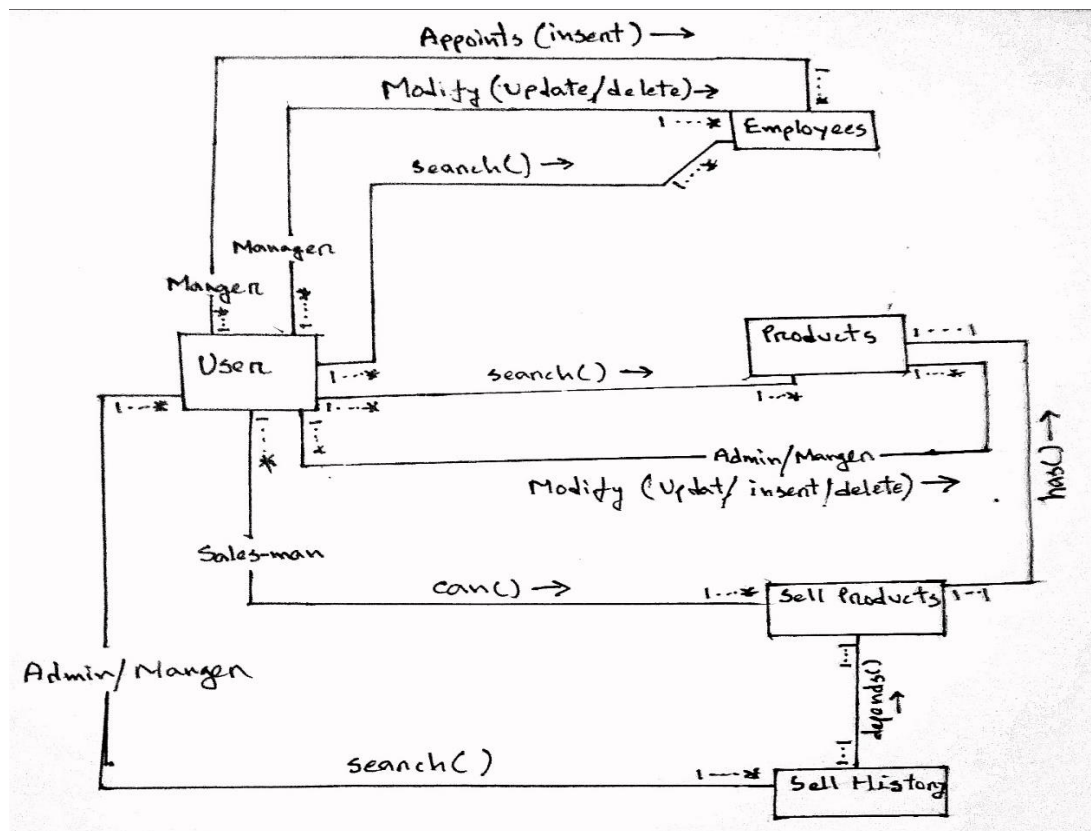 Appoints (insert) →
1...*
Modify (Update/delete) →
1...*
Employees
search() →
1...*
Manager
Manger
1...*
1...*
User
1...*
Products
1....1
search() →
1...*
1...*
1...*
1...*
1...*
1...*
Admin/Manger
Modify (Updat/ insert/delete) →
has() →
Sales-man
can() →
1...*
Sell Products
1..1
Admin/Manger
1..1
depends() →
1..1
search()
1...*
Sell History